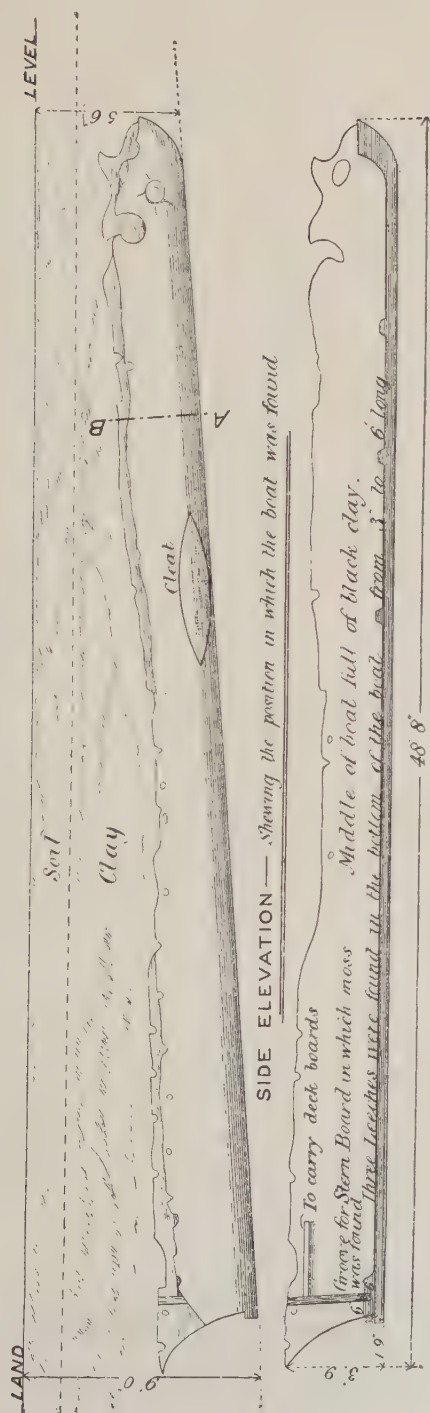 LAND
LEVEL
9' 0"
5' 6"
Soil
Clay
B
A
Cleat
SIDE ELEVATION — Shewing the position in which the boat was found
To carry deck boards
Groove for Stern Board in which moss
was found
Middle of boat full of black clay.
Three Leeches were found in the bottom of the boat from 3" to 6" long
3' 9
1 9"
6
48' 8"